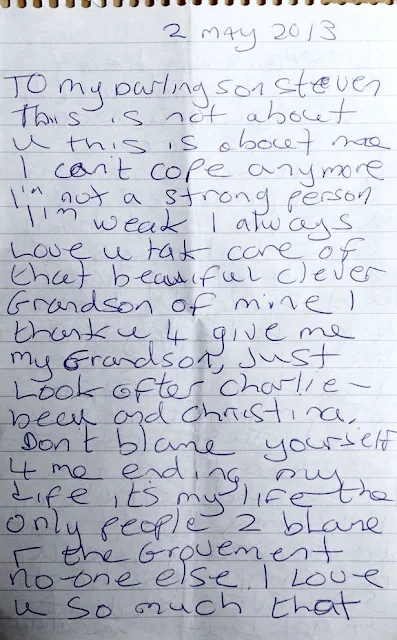 2 may 2013
TO my Darling son steven
This is not about
u this is about me
I can't cope anymore
I'm not a strong person
I'm weak I always
Love u tak care of
that beautiful clever
Grandson of mine I
thank u 4 give me
my Grandson, Just
Look after charlie-
bear and christina,
Don't blame yourself
4 me ending my
life it's my life the
only people 2 blame
r the Grovement
no-one else I Love
u so much that